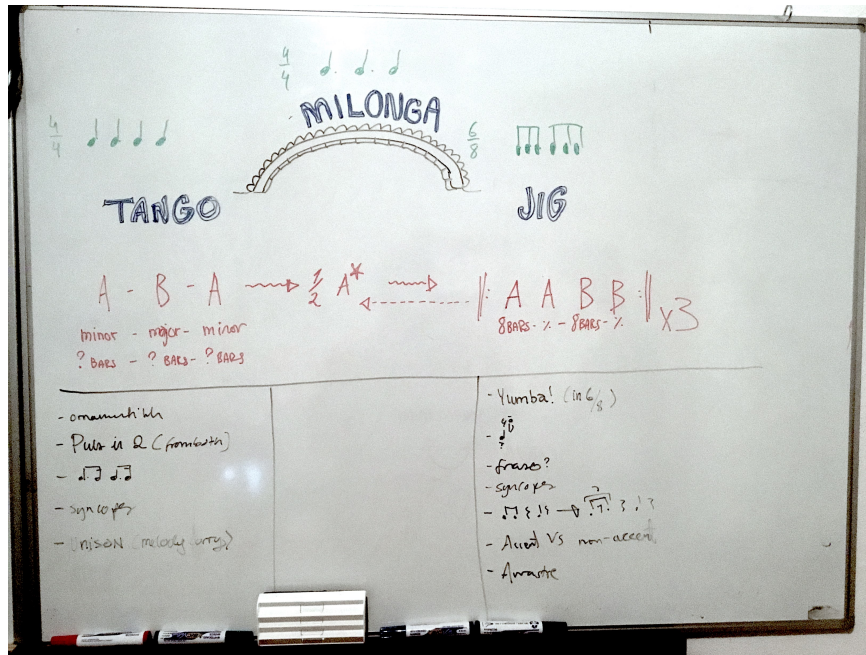 4/4
MILONGA
4/4
6/8
TANGO
JIG
A - B - A
1/2 A*
||: A A B B :|| x3
minor - major - minor
8 BARS - % - 8 BARS - %
? BARS - ? BARS - ? BARS
- Puls in 2 (from both)
- syncopes
- UNISON (melody
- Yumba! (in 6/8)
- fraseo?
- syncopes
- Accent VS non-accent
- Arrastre